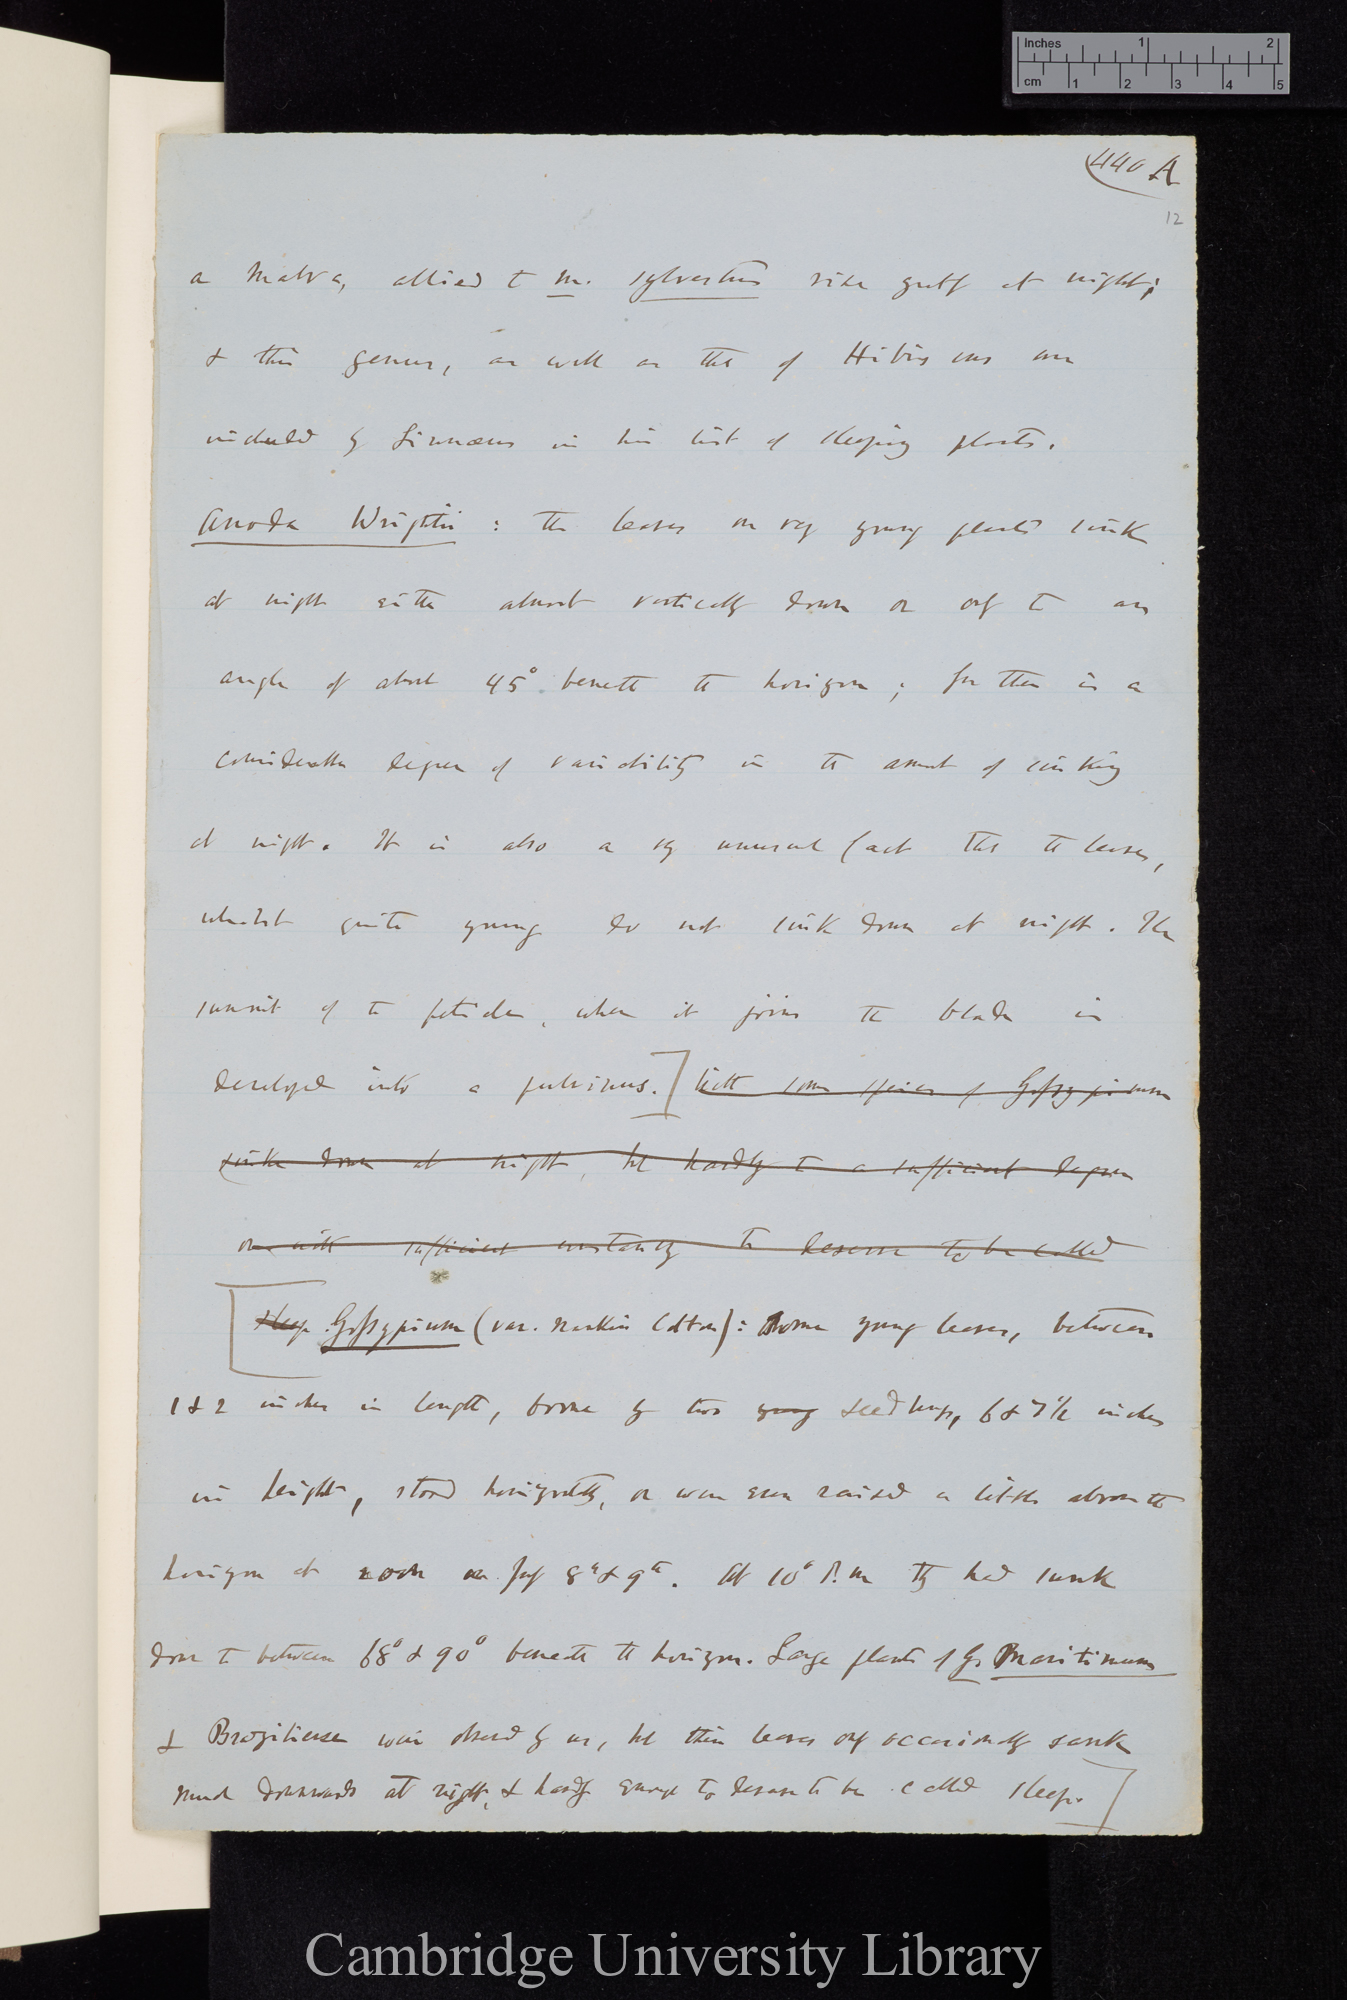 Inches 1 2
cm 1 2 3 4 5
440 A
12
a Malva, allied to M. sylvestris rise greatly at night;
& this genus, as well as that of Hibiscus are
included by Linnæus in his list of sleeping plants.
Anoda Wrightii: the leaves on very young plants sink
at night either almost vertically down or only to an
angle of about 45° beneath the horizon; for there is a
considerable degree of variability in the amount of sinking
at night. It is also a very unusual fact that the leaves,
whilst quite young do not sink down at night. The
summit of the petiole, where it joins the blade is
developed into a pulvinus.] some species of Gossypium
sink down at night, but hardly to a sufficient degree
or with sufficient constancy to deserve to be called
[sleep. Gossypium (var. Nankin Cotton): Some young leaves, between
1 & 2 inches in length, borne by two young seedlings, 6 & 7 1/2 inches
in height, stood horizontally, or were even raised a little above the
horizon at noon on July 8th & 9th. At 10° P.m they had sunk
down to between 68° & 90° beneath the horizon. Large plants of G. Maritimum
& Braziliense were observed by us, but their leaves only occasionally sank
much downwards at night, & hardly enough to deserve to be called sleep.]
Cambridge University Library